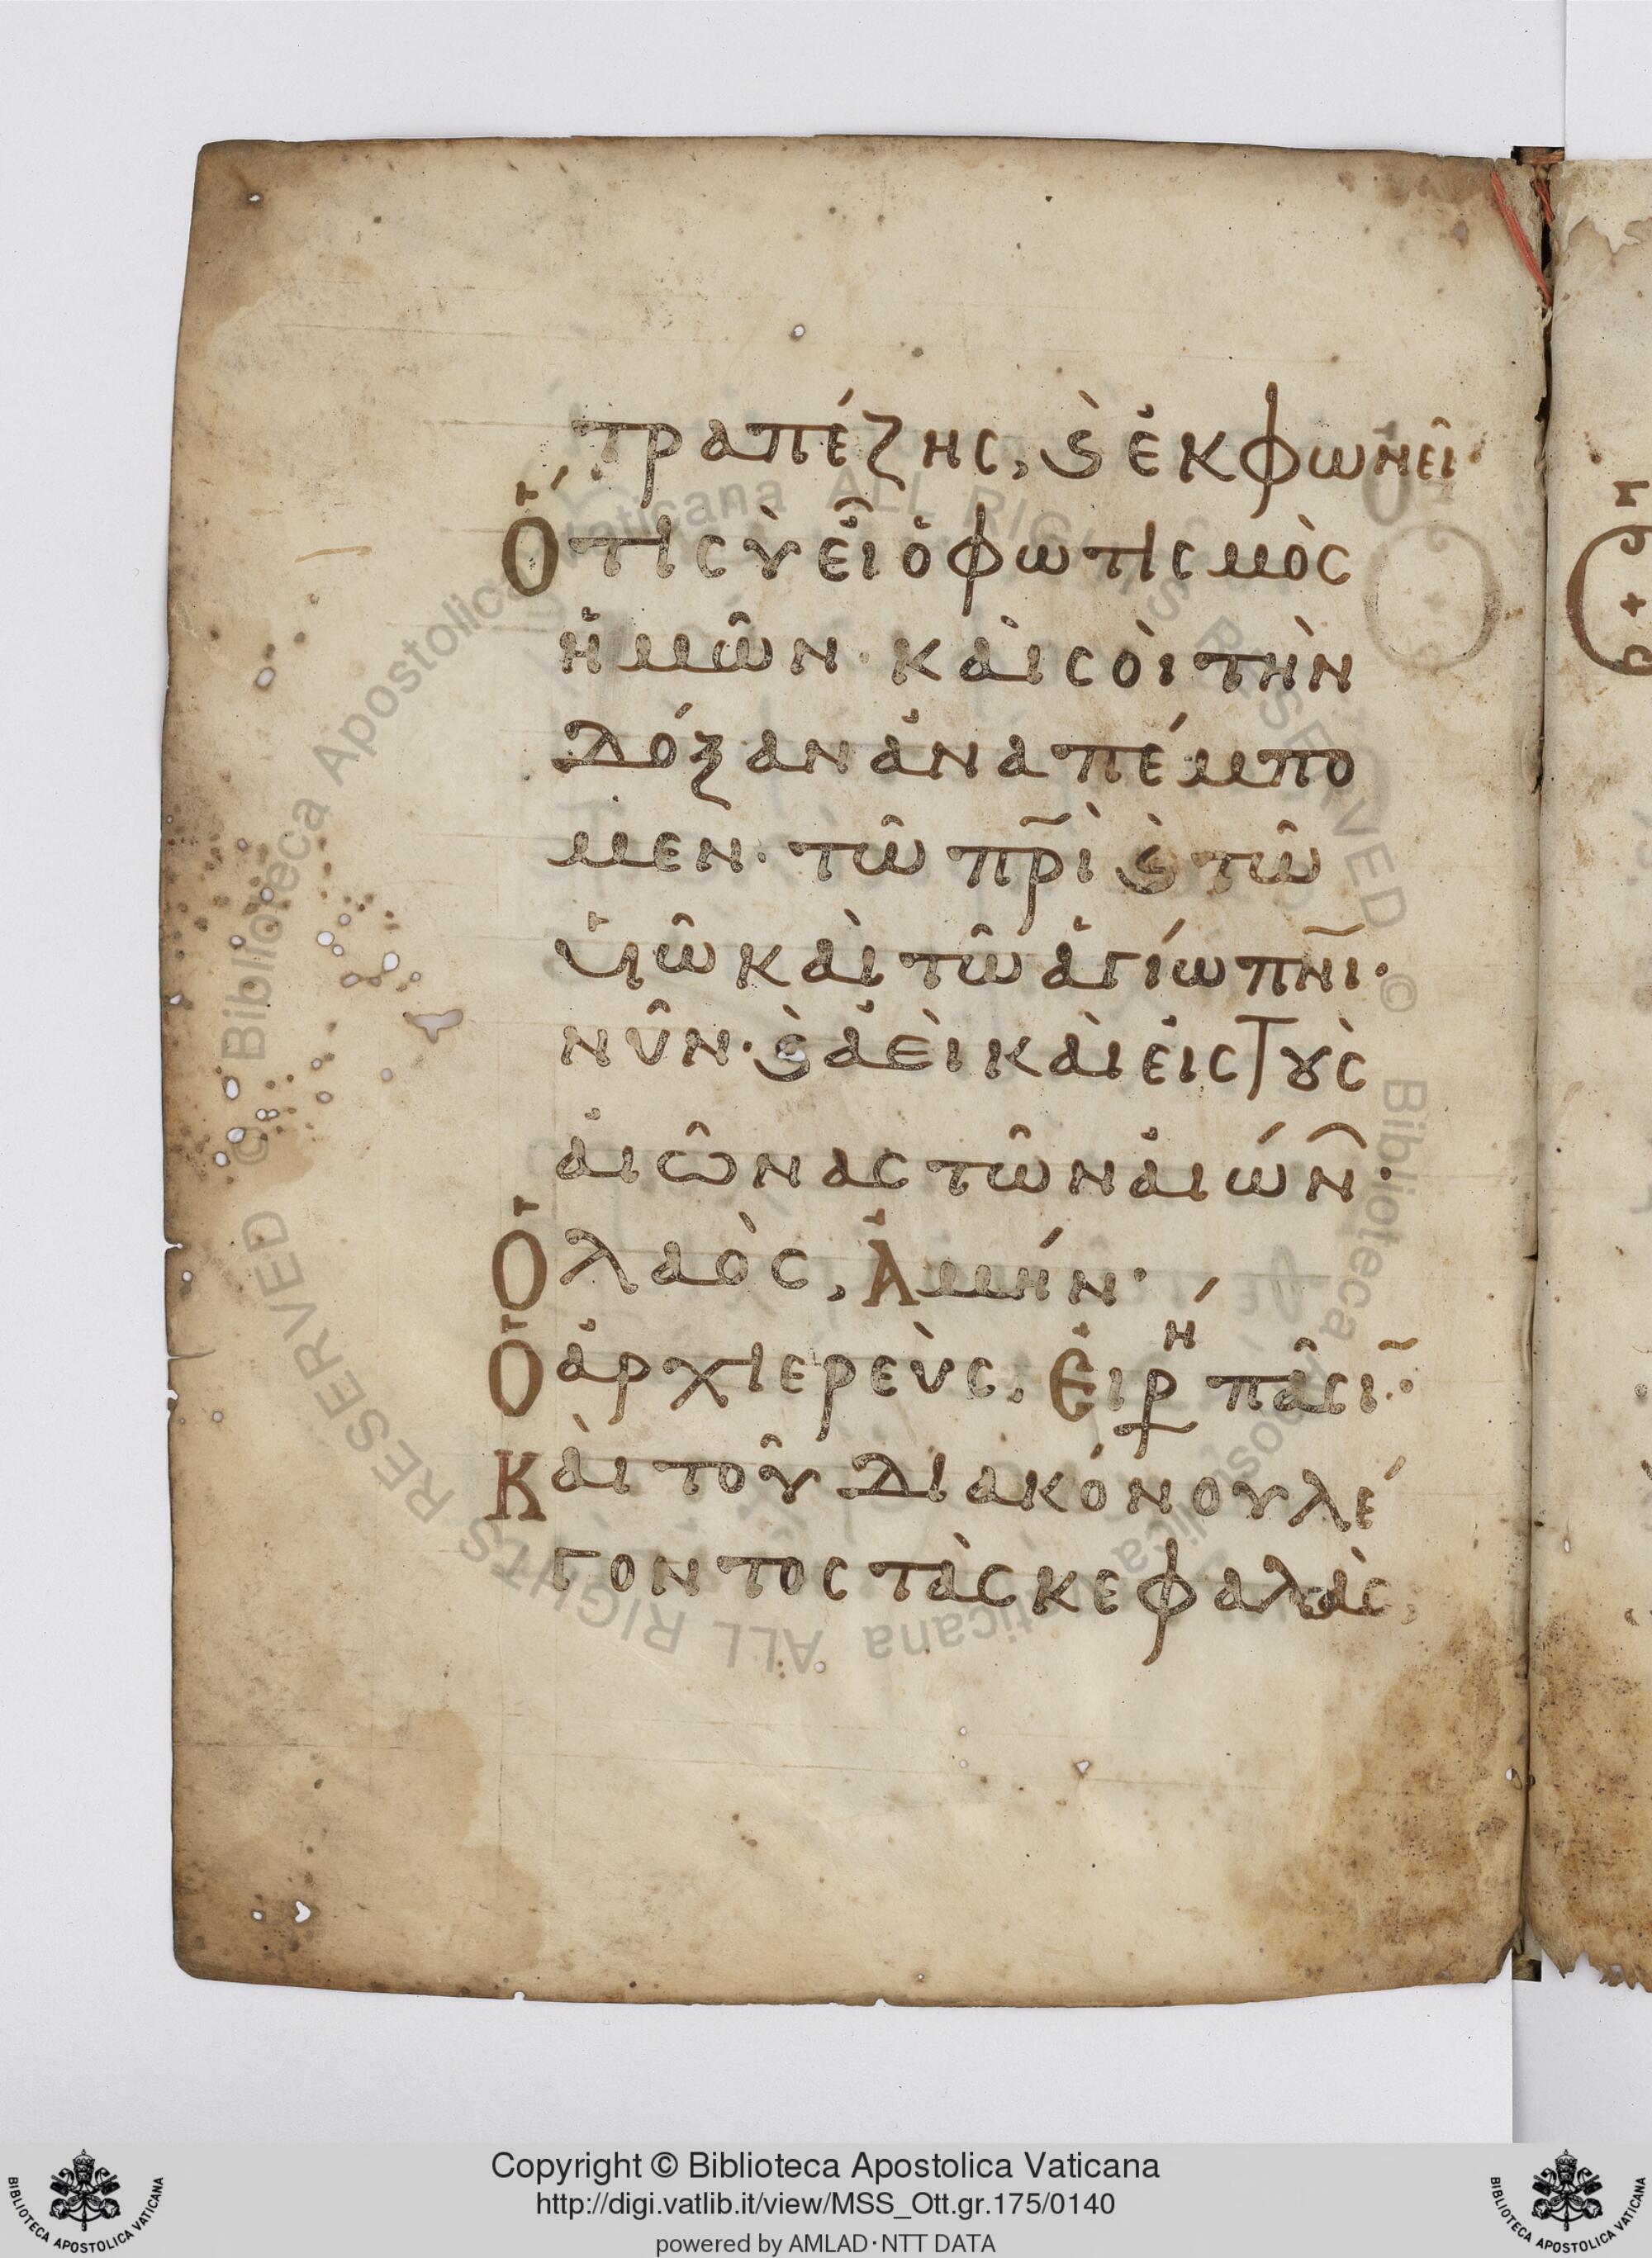 τραπέζης, ϛ̀ ἐκφωνεῖ
Ὅτι σὺ εἶ ὁ φωτισμὸς
ἡμῶν· καὶ σοὶ τὴν
δόξαν ἀναπέμπο
μεν· τῶ πρ̃ὶ ϛ̀ τῶ
υἱῶ καὶ τῶ ἁγίω πνι̃·
νῦν· ϛ̀ ἀεὶ καὶ εἰς τοὺς
αἰῶνας τῶν αἰών̑·
Ὁ λαὸς, Ἀμήν·
Ὁ ἀρχιερεὺς, Εἰρή πᾶσι̃·
Καὶ τοῦ διακόνου λέ
γοντος τὰς κεφαλὰς,
Copyright © Biblioteca Apostolica Vaticana
http://digi.vatlib.it/view/MSS_Ott.gr.175/0140
powered by AMLAD·NTT DATA
BIBLIOTECA APOSTOLICA VATICANA
BIBLIOTECA APOSTOLICA VATICANA
© Biblioteca Apostolica Vaticana ALL RIGHTS RESERVED © Biblioteca Apostolica Vaticana ALL RIGHTS RESERVED